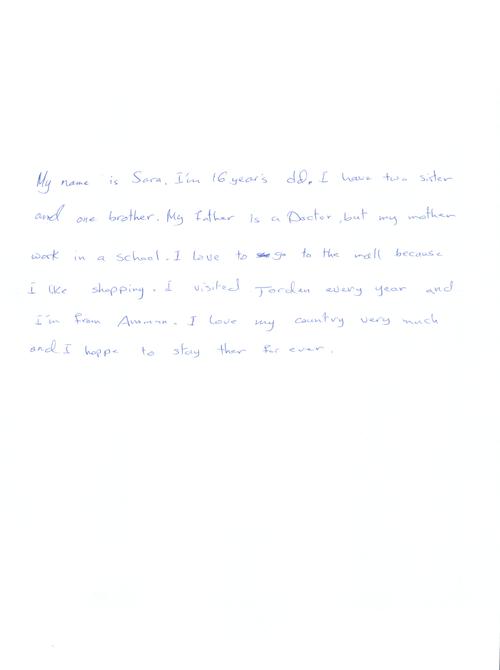 My name is Sara. I'm 16 year's old. I have two sister
and one brother. My father Is a Doctor, but my mother
work in a school. I love to go to the mall because
I like shopping. I visited Jorden every year and
I'm from Amman. I love my country very much
and I hoppe to stay ther for ever.